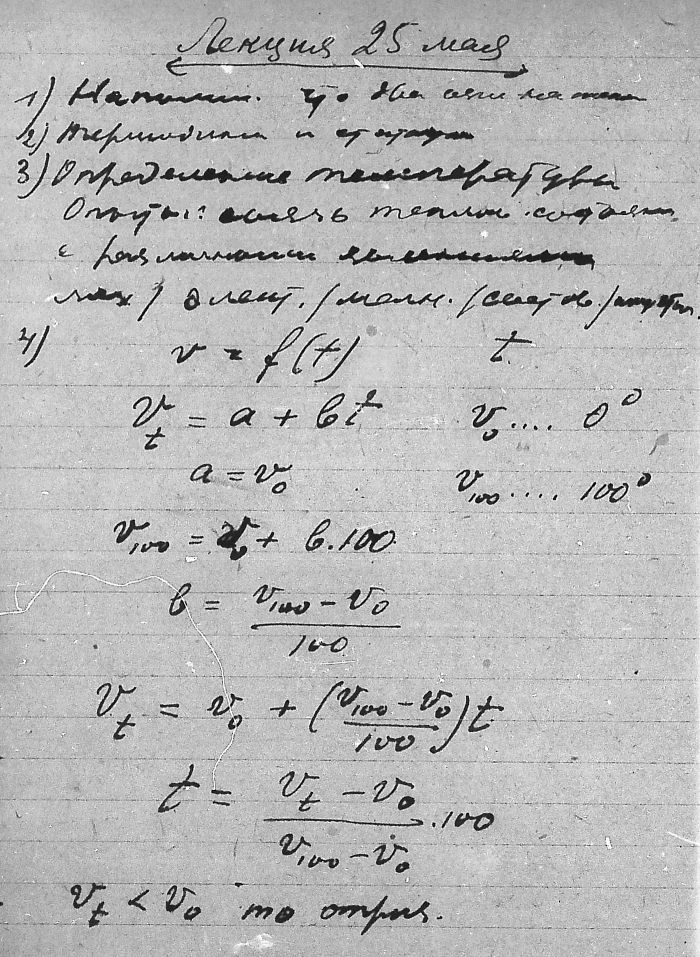 Лекция 25 мая
1) Напомин. что два
2) Термодинам и
3) Определение температуры
Опыты: связь теплов. состояния
с различными
/ элект. / магн. /
4) v = f(t) t
v_t = a + bt v_0 .... 0°
a = v_0 v_100 .... 100°
v_100 = v_0 + b.100
b = (v_100 - v_0) / 100
v_t = v_0 + ((v_100 - v_0) / 100) t
t = (v_t - v_0) / (v_100 - v_0) .100
v_t < v_0 то отриц.